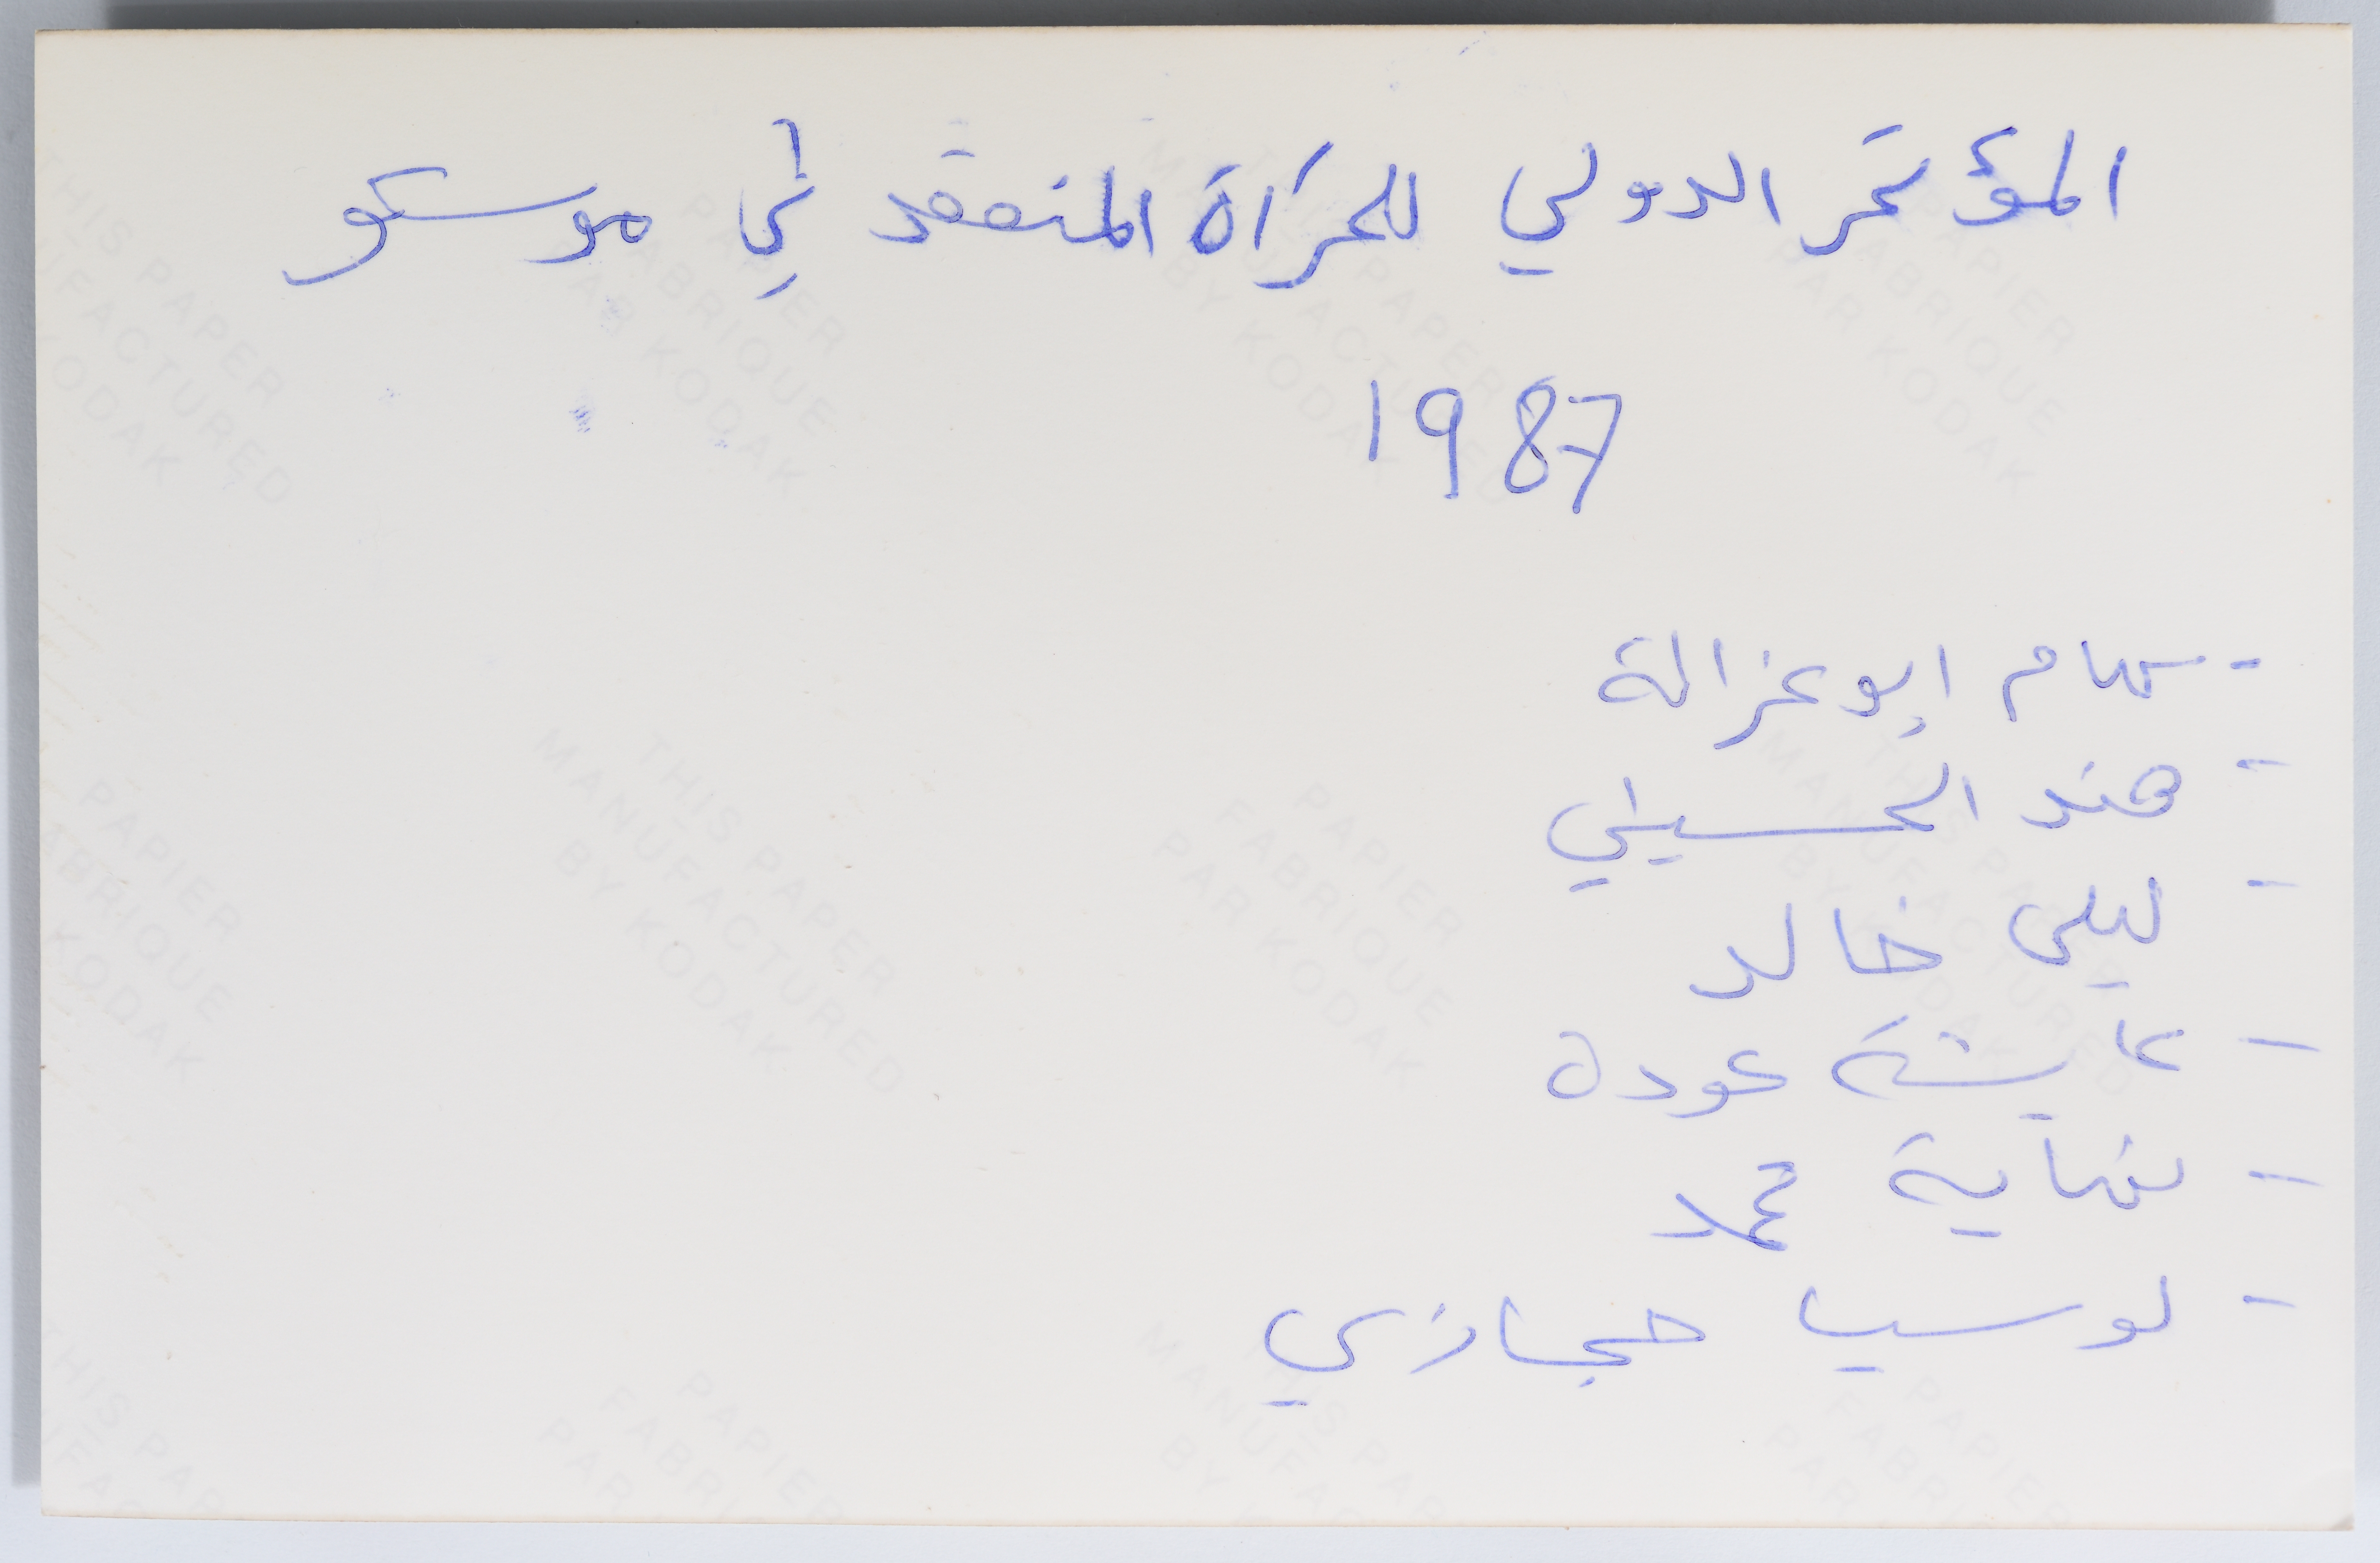 المؤتمر الدولي للمرأة المنعقد في موسكو
1987
- سهام ابو غزالة
- هند الحسيني
- ليلى خالد
- عايشة عودة
- نهاية محمد
- لوسيا حجازي
THIS PAPER
MANUFACTURED
BY KODAK
PAPIER
FABRIQUE
PAR KODAK